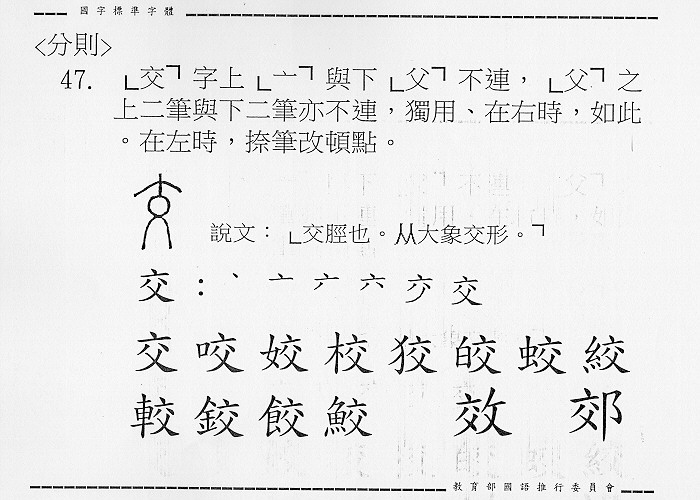 國字標準字體
<分則>
47. ﹂交﹁字上﹂亠﹁與下﹂父﹁不連，﹂父﹁之
上二筆與下二筆亦不連，獨用、在右時，如此
。在左時，捺筆改頓點。
說文：﹂交脛也。从大象交形。﹁
交：丶亠六交
交咬姣校狡皎蛟絞
較鉸餃鮫效郊
教育部國語推行委員會